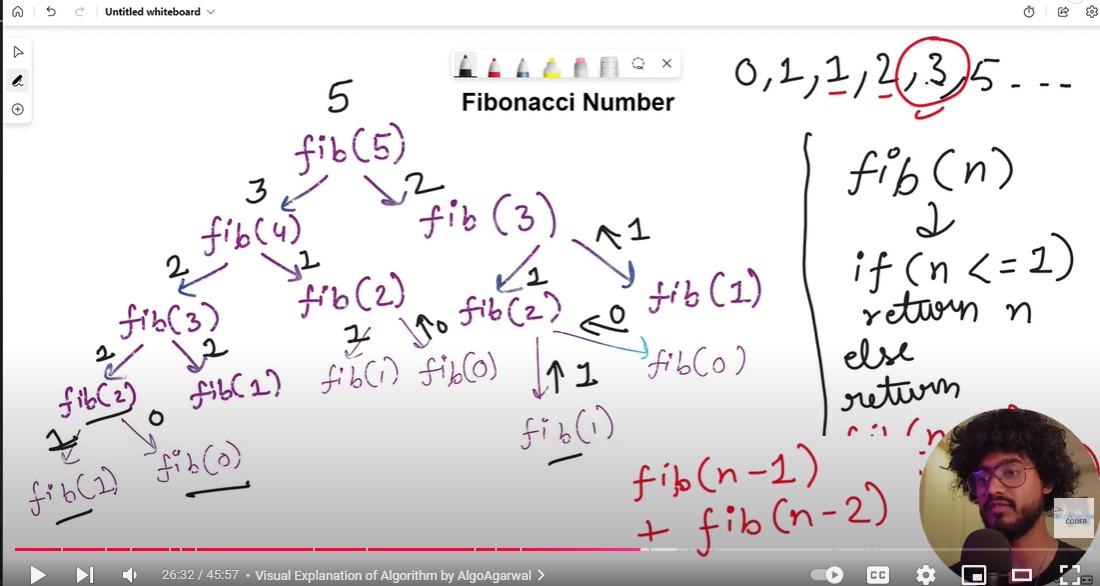 Untitled whiteboard
0, 1, 1, 2, 3, 5 ---
Fibonacci Number
5
fib(5)
3
2
fib(4)
fib (3)
1
2
1
1
fib(3)
fib(2)
fib(2)
fib(1)
1
2
1
0
0
fib(2)
fib(1)
fib(1)
fib(0)
1
fib(0)
1
0
fib(1)
fib(1)
fib(0)
fib(n)
if (n <= 1)
return n
else
return
fib(n-1)
+ fib(n-2)
CODER
26:32 / 45:57 • Visual Explanation of Algorithm by AlgoAgarwal
CC